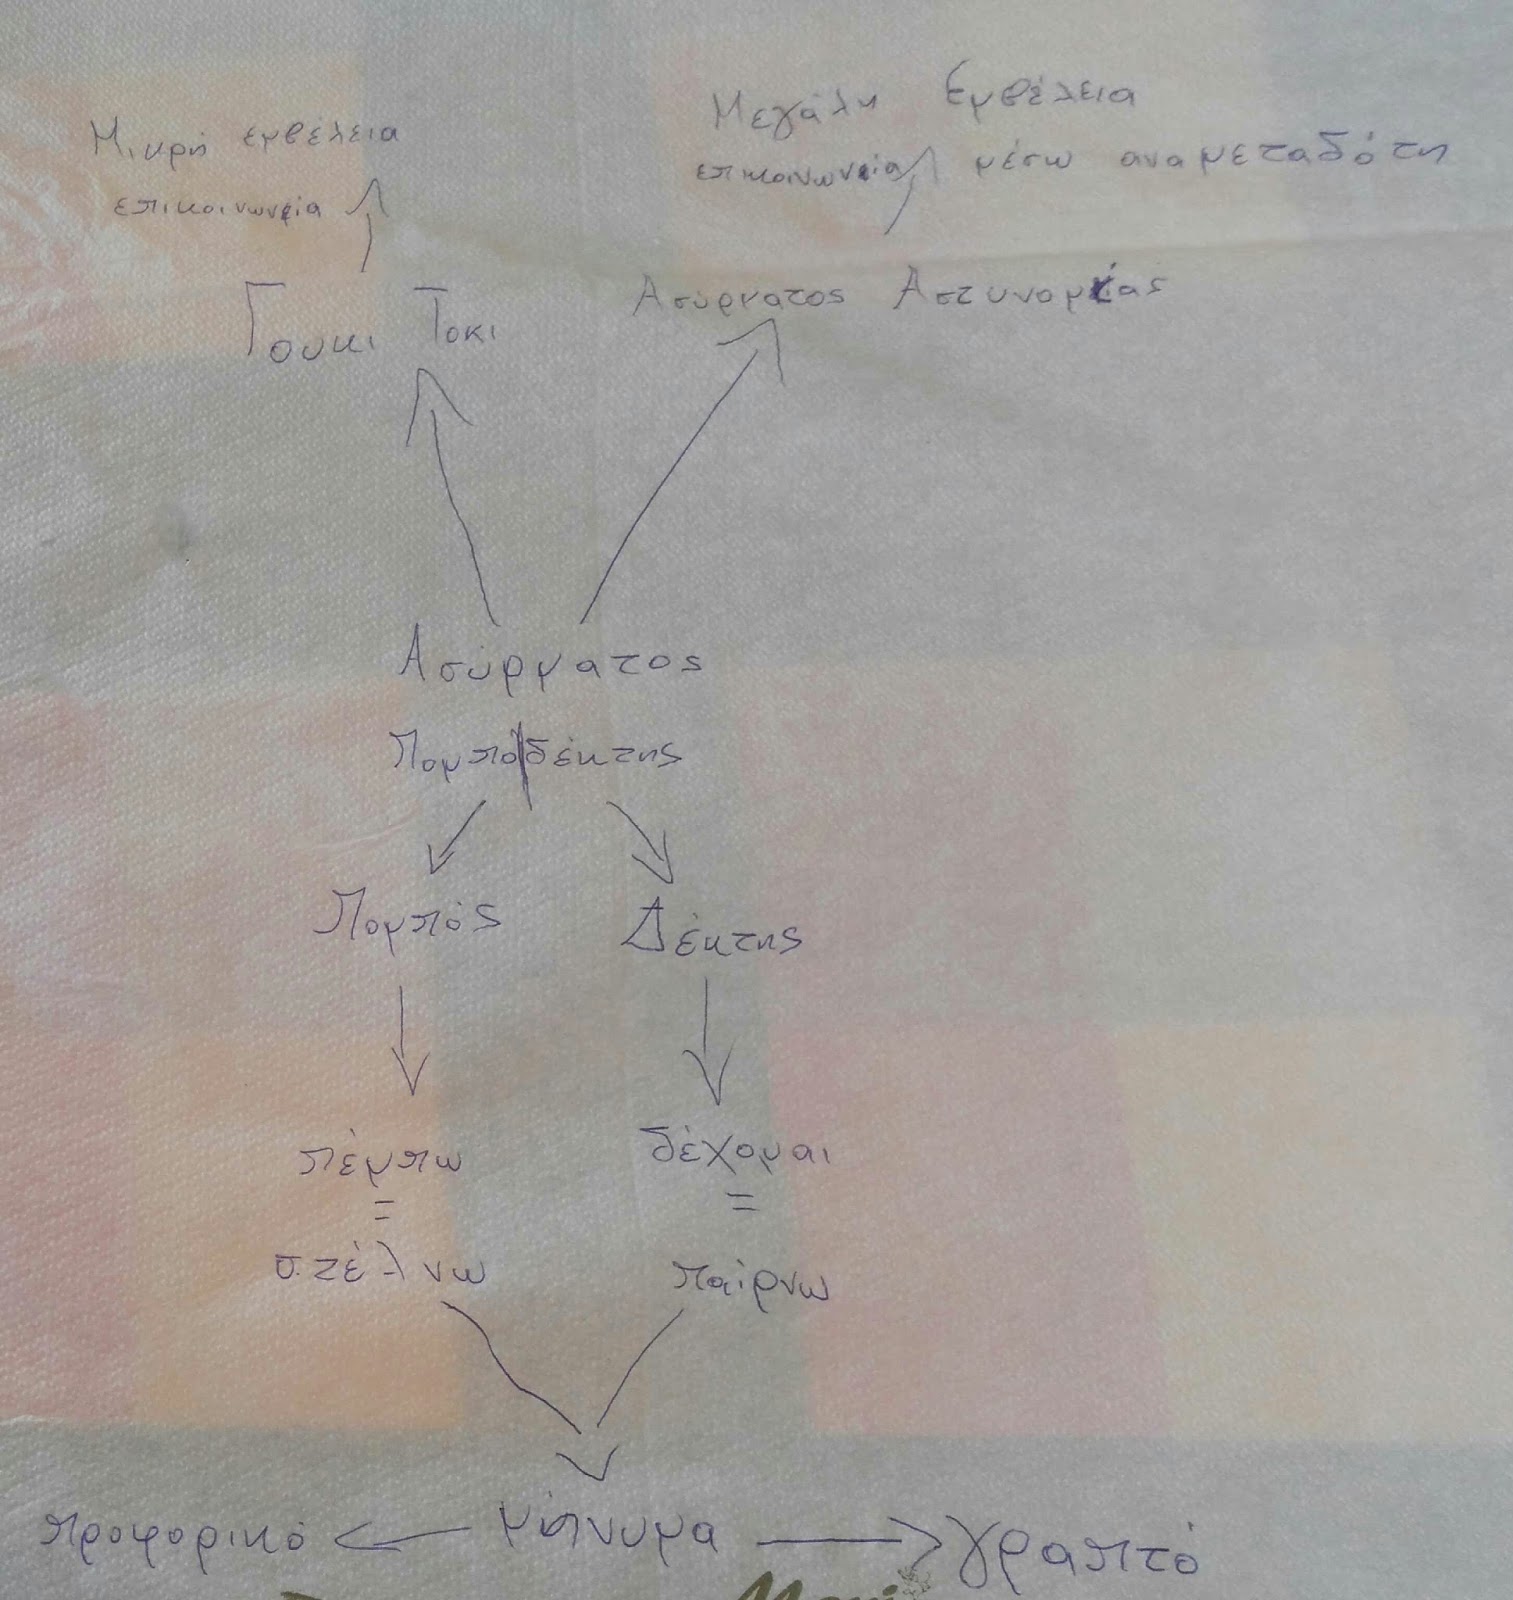 Μικρή εμβέλεια
επικοινωνεία
Μεγάλη Εμβέλεια
επικοινωνεία μέσω αναμεταδότη
Γουκι Τοκι
Ασύρματος Αστυνομίας
Ασύρματος
Πομπό|δέκτης
Πομπός Δέκτης
πέμπω δέχομαι
= =
στέλνω παίρνω
προφορικό μήνυμα γραπτό